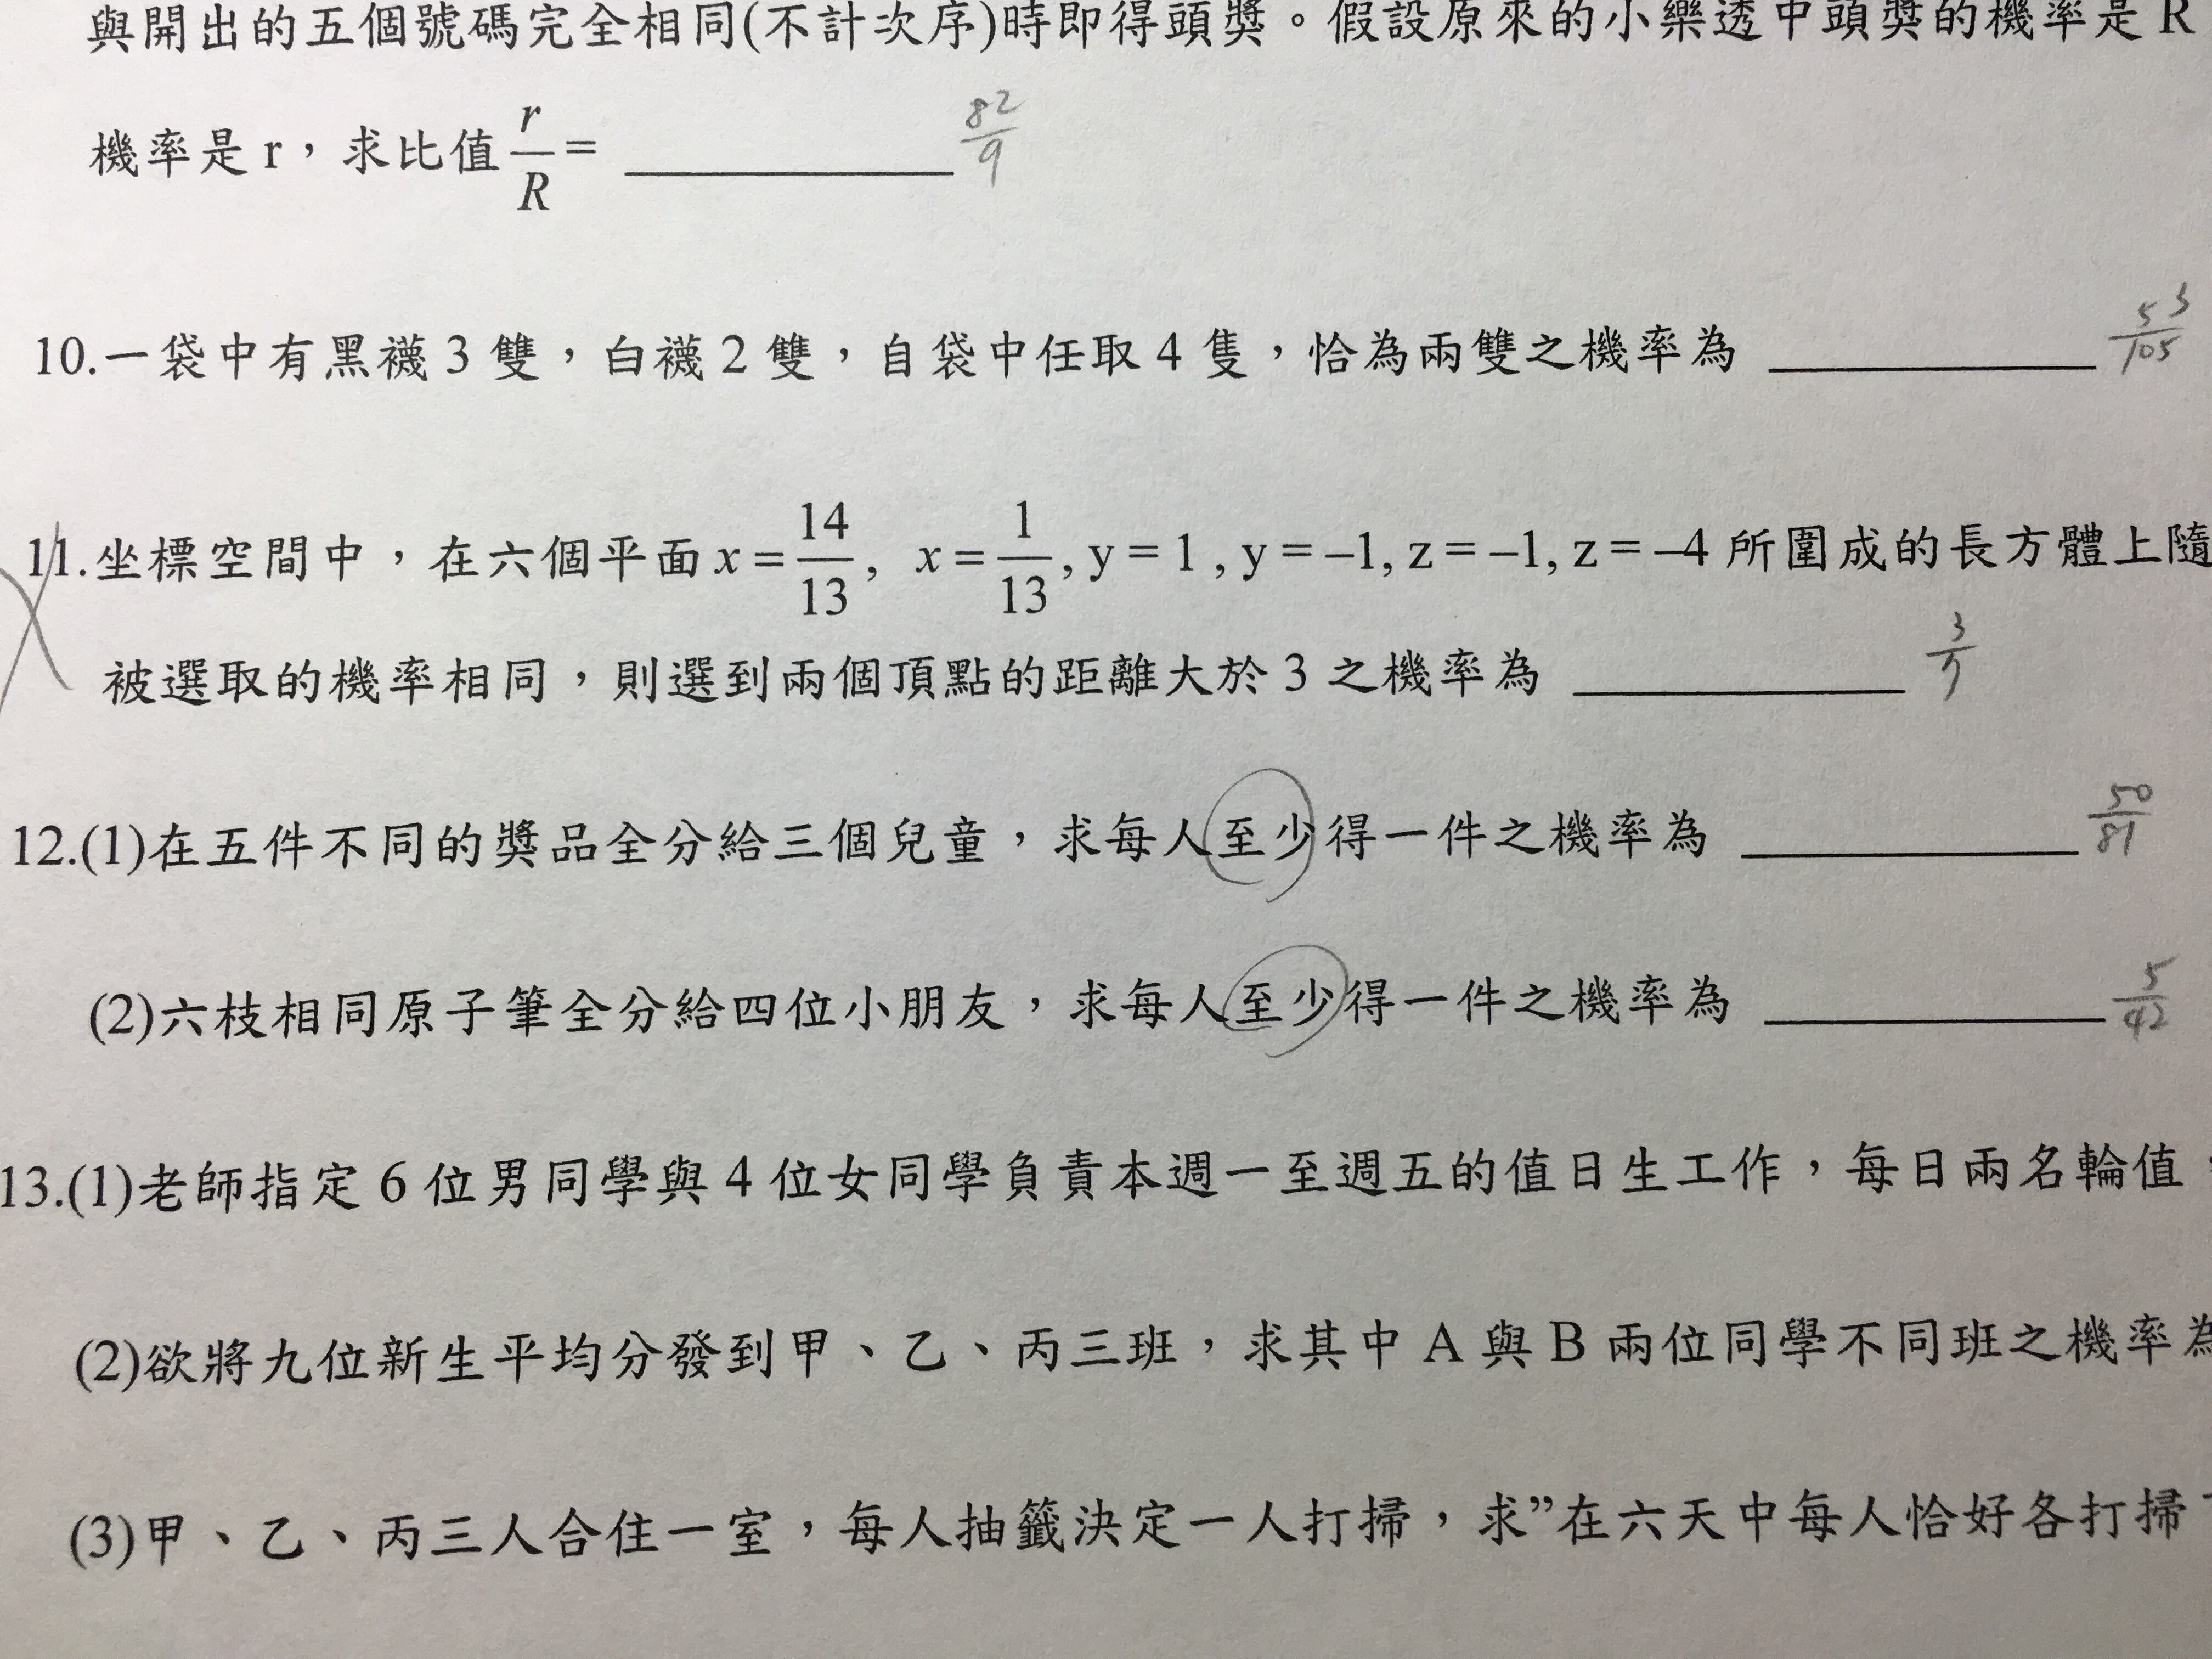 與開出的五個號碼完全相同(不計次序)時即得頭獎。假設原來的小樂透中頭獎的機率是 R
機率是 r,求比值 r/R = ________ 82/9
10.一袋中有黑襪 3 雙,白襪 2 雙,自袋中任取 4 隻,恰為兩雙之機率為 ________ 53/105
11.坐標空間中,在六個平面 x = 14/13, x = 1/13, y = 1 , y = –1, z = –1, z = –4 所圍成的長方體上隨
被選取的機率相同,則選到兩個頂點的距離大於 3 之機率為 ________ 3/7
12.(1)在五件不同的獎品全分給三個兒童,求每人至少得一件之機率為 ________ 50/81
(2)六枝相同原子筆全分給四位小朋友,求每人至少得一件之機率為 ________ 5/42
13.(1)老師指定 6 位男同學與 4 位女同學負責本週一至週五的值日生工作,每日兩名輪值,
(2)欲將九位新生平均分發到甲、乙、丙三班,求其中 A 與 B 兩位同學不同班之機率為
(3)甲、乙、丙三人合住一室,每人抽籤決定一人打掃,求”在六天中每人恰好各打掃